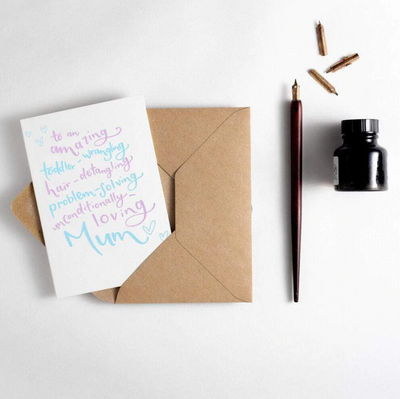 to an
amazing
toddler-wrangling
hair-detangling
problem-solving
unconditionally-
loving
Mum